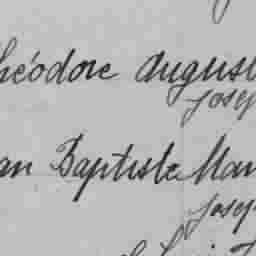 héodore August
Josep
an Baptiste Mau
Josep